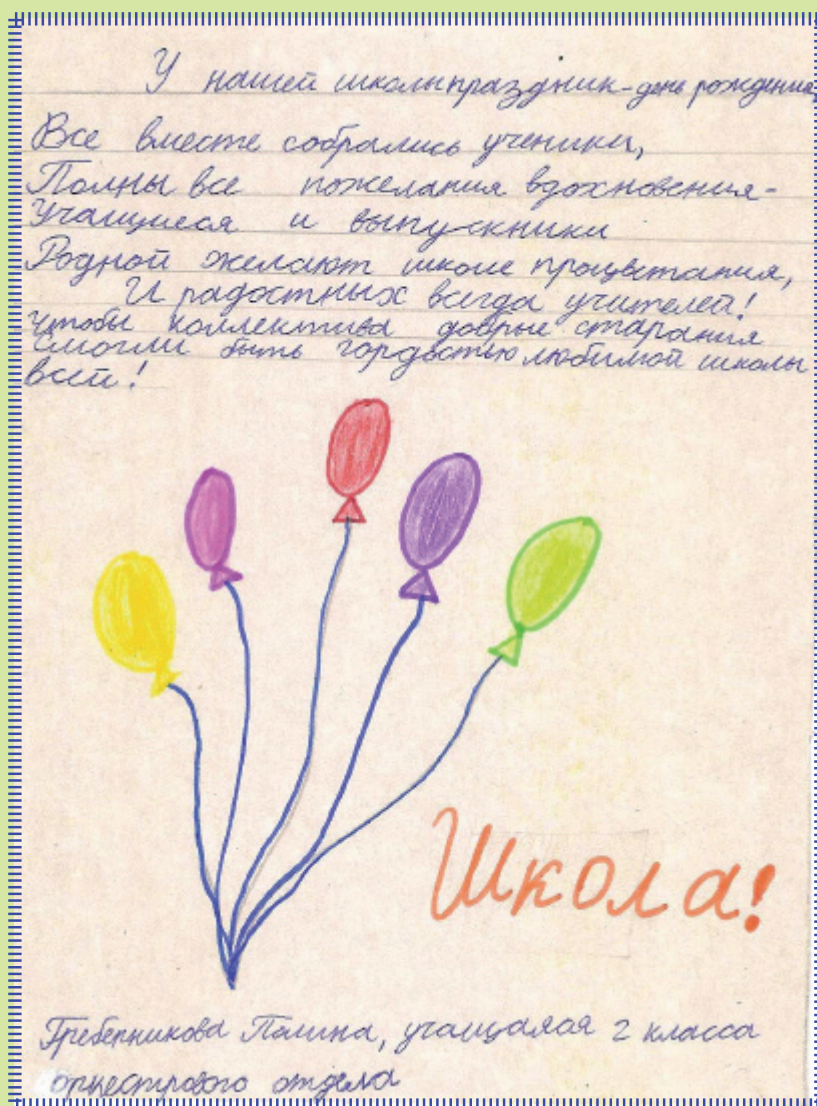 У нашей школы праздник-день рождения,
Все вместе собрались ученики,
Полны все пожелания вдохновения-
Учащиеся и выпускники
Родной желают школе процветания,
И радостных всегда учителей!
Чтобы коллектива добрые старания
Смогли быть гордостью любимой школы
всей!
Школа!
Гребенникова Полина, учащаяся 2 класса
оркестрового отдела